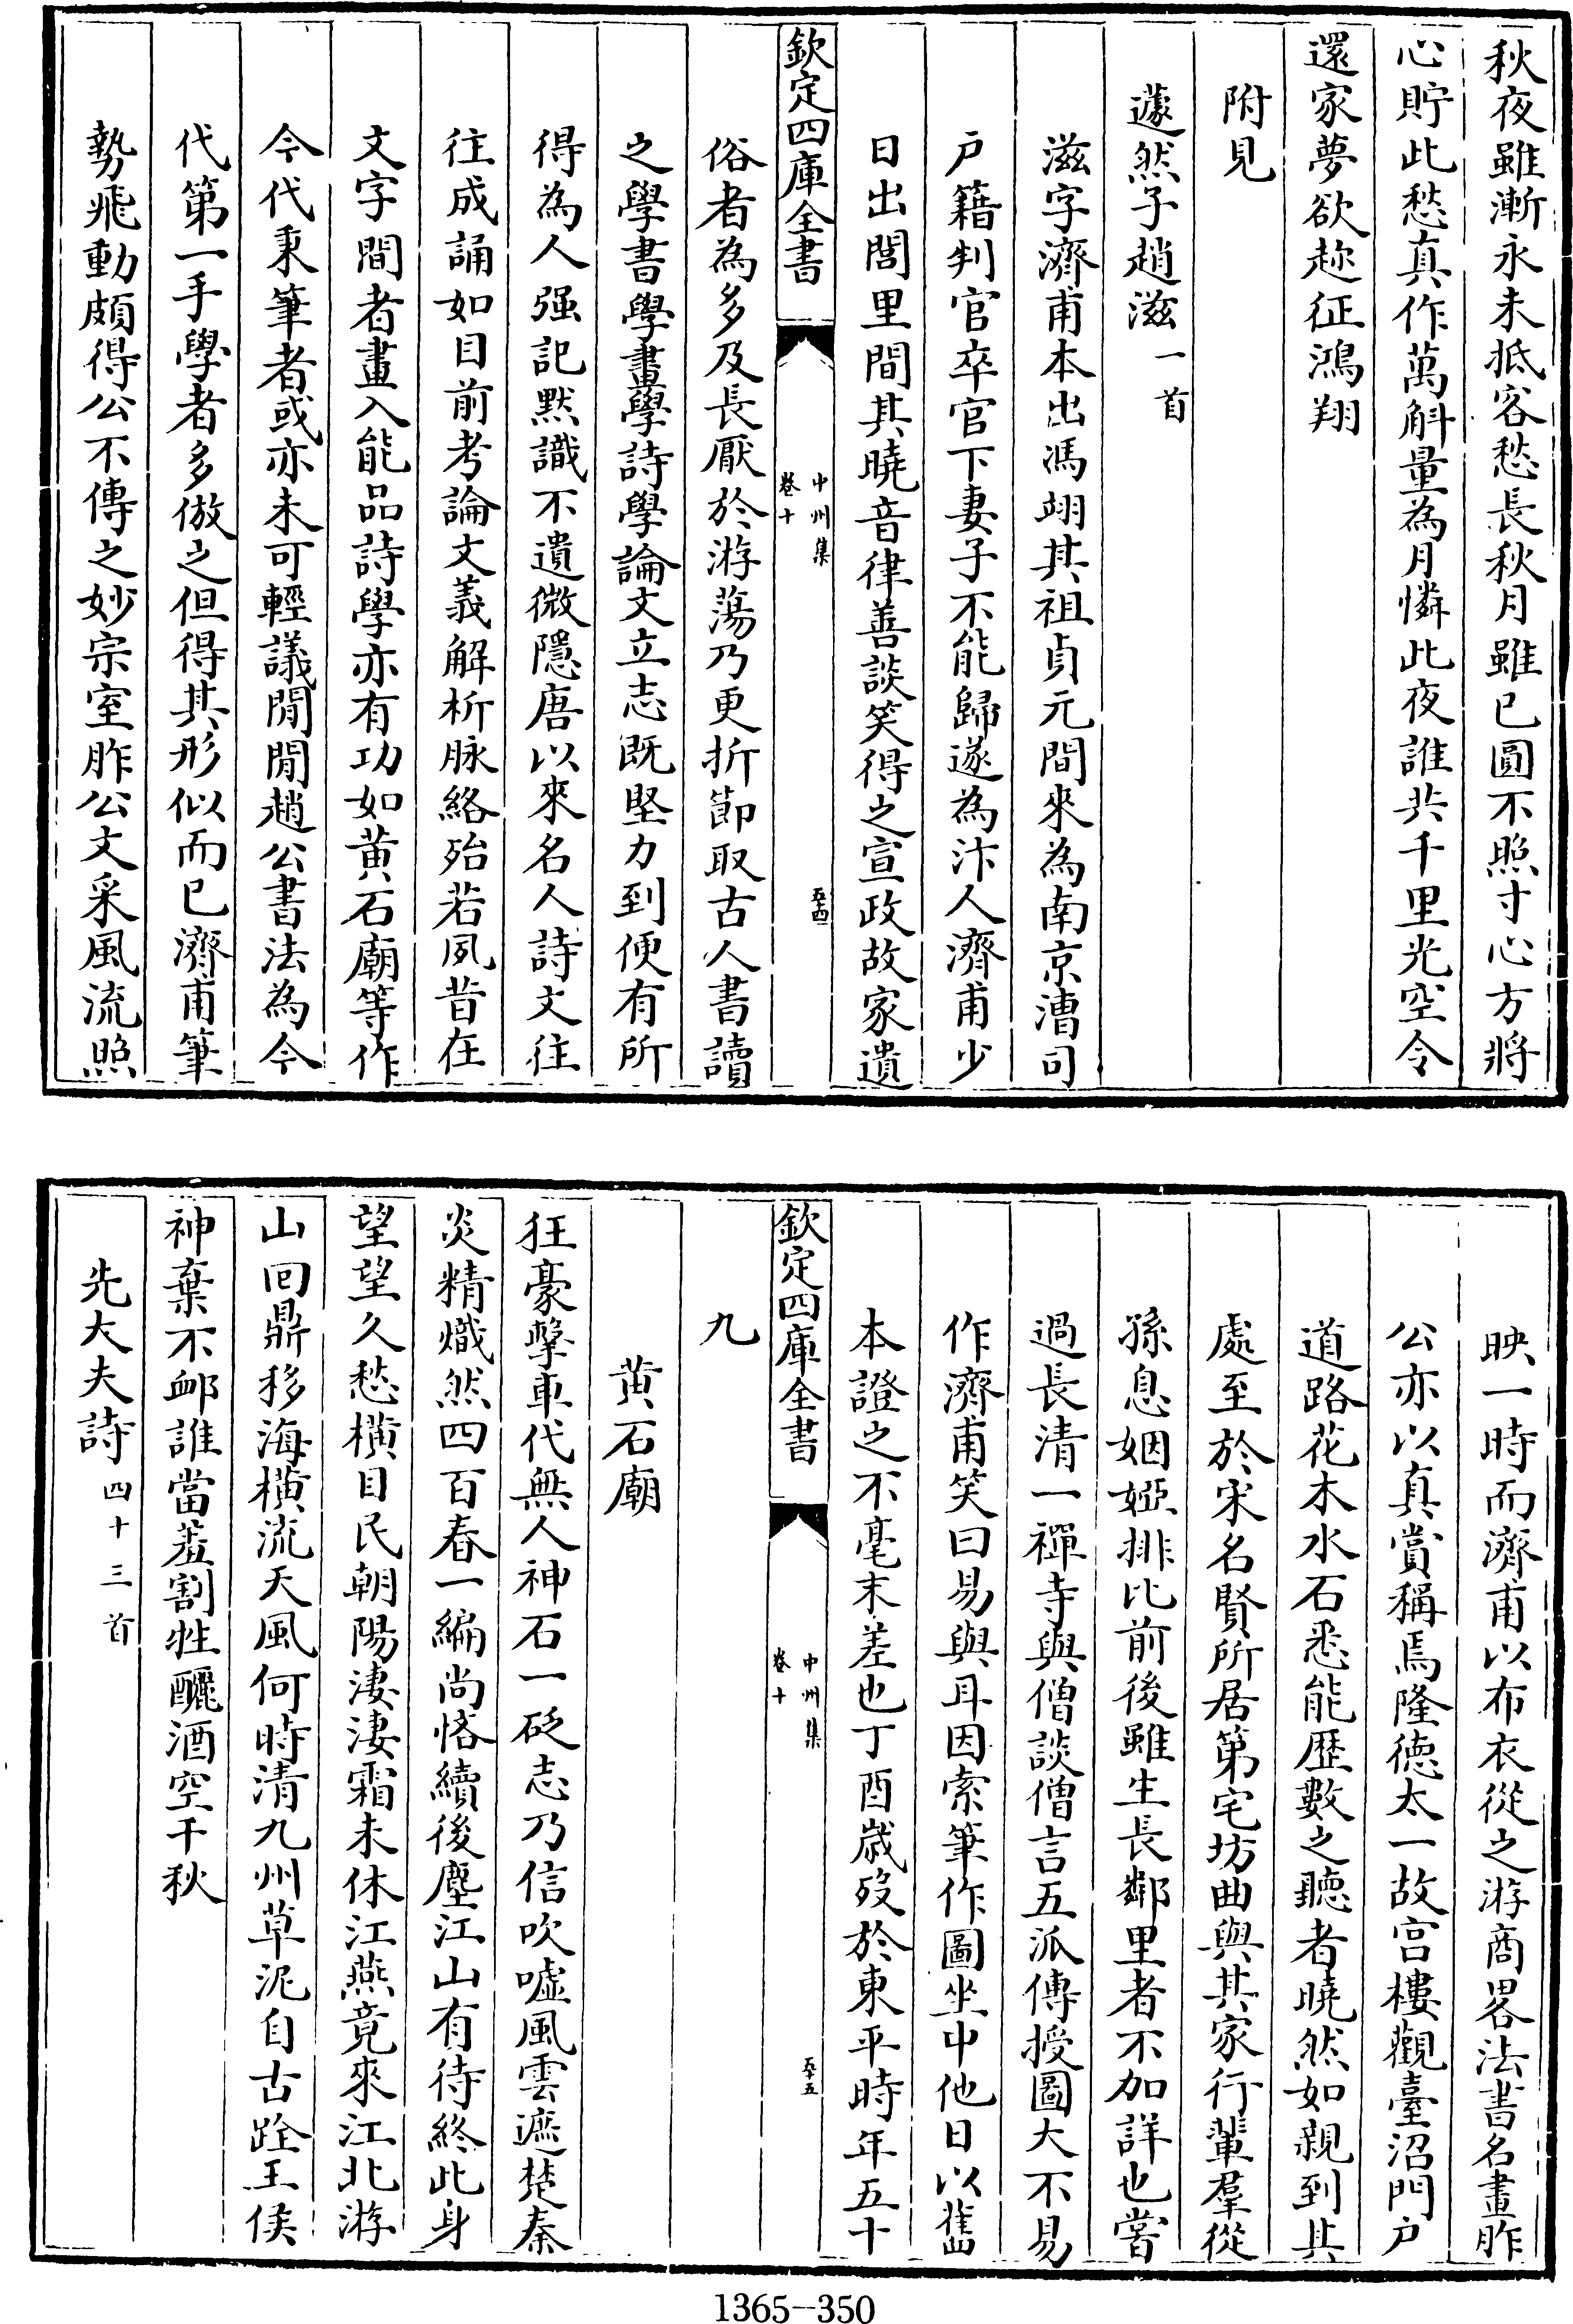 秋夜雖漸永未抵客愁長秋月雖已圓不照寸心方將
心貯此愁真作萬斛量為月憐此夜誰共千里光空令
還家夢欲趂征鴻翔
附見
遽然子趙滋一首
滋字濟甫本出馮翊其祖貞元間來為南京漕司
戶籍判官卒官下妻子不能歸遂為汴人濟甫少
日出閭里間其曉音律善談笑得之宣政故家遺
欽定四庫全書
中州集
卷十
五十四
俗者為多及長厭於游蕩乃更折節取古人書讀
之學書學畫學詩學論文立志既堅力到便有所
得為人强記默識不遺微隱唐以來名人詩文往
往成誦如目前考論文義解析脉絡殆若夙昔在
文字間者畫入能品詩學亦有功如黃石廟等作
今代秉筆者或亦未可輕議閒閒趙公書法為今
代第一手學者多倣之但得其形似而已濟甫筆
勢飛動頗得公不傳之妙宗室胙公文采風流照
映一時而濟甫以布衣從之游商畧法書名畫胙
公亦以真賞稱焉隆德太一故宮樓觀臺沼門戶
道路花木水石悉能歷數之聽者曉然如親到其
處至於宋名賢所居第宅坊曲與其家行輩羣從
孫息姻婭排比前後雖生長鄰里者不加詳也嘗
過長清一禪寺與僧談僧言五派傳授圖大不易
作濟甫笑曰易與耳因索筆作圖坐中他日以舊
本證之不毫末差也丁酉歲歿於東平時年五十
欽定四庫全書
中州集
卷十
五十五
九
黃石廟
狂豪擊車代無人神石一砭志乃信吹噓風雲遮楚秦
炎精熾然四百春一編尚恡續後塵江山有待終此身
望望久愁橫目民朝陽淒淒霜未休江燕竟來江北游
山回鼎移海橫流天風何時清九州草泥自古跧王侯
神棄不卹誰當羞割牲釃酒空千秋
先大夫詩四十三首
1365-350